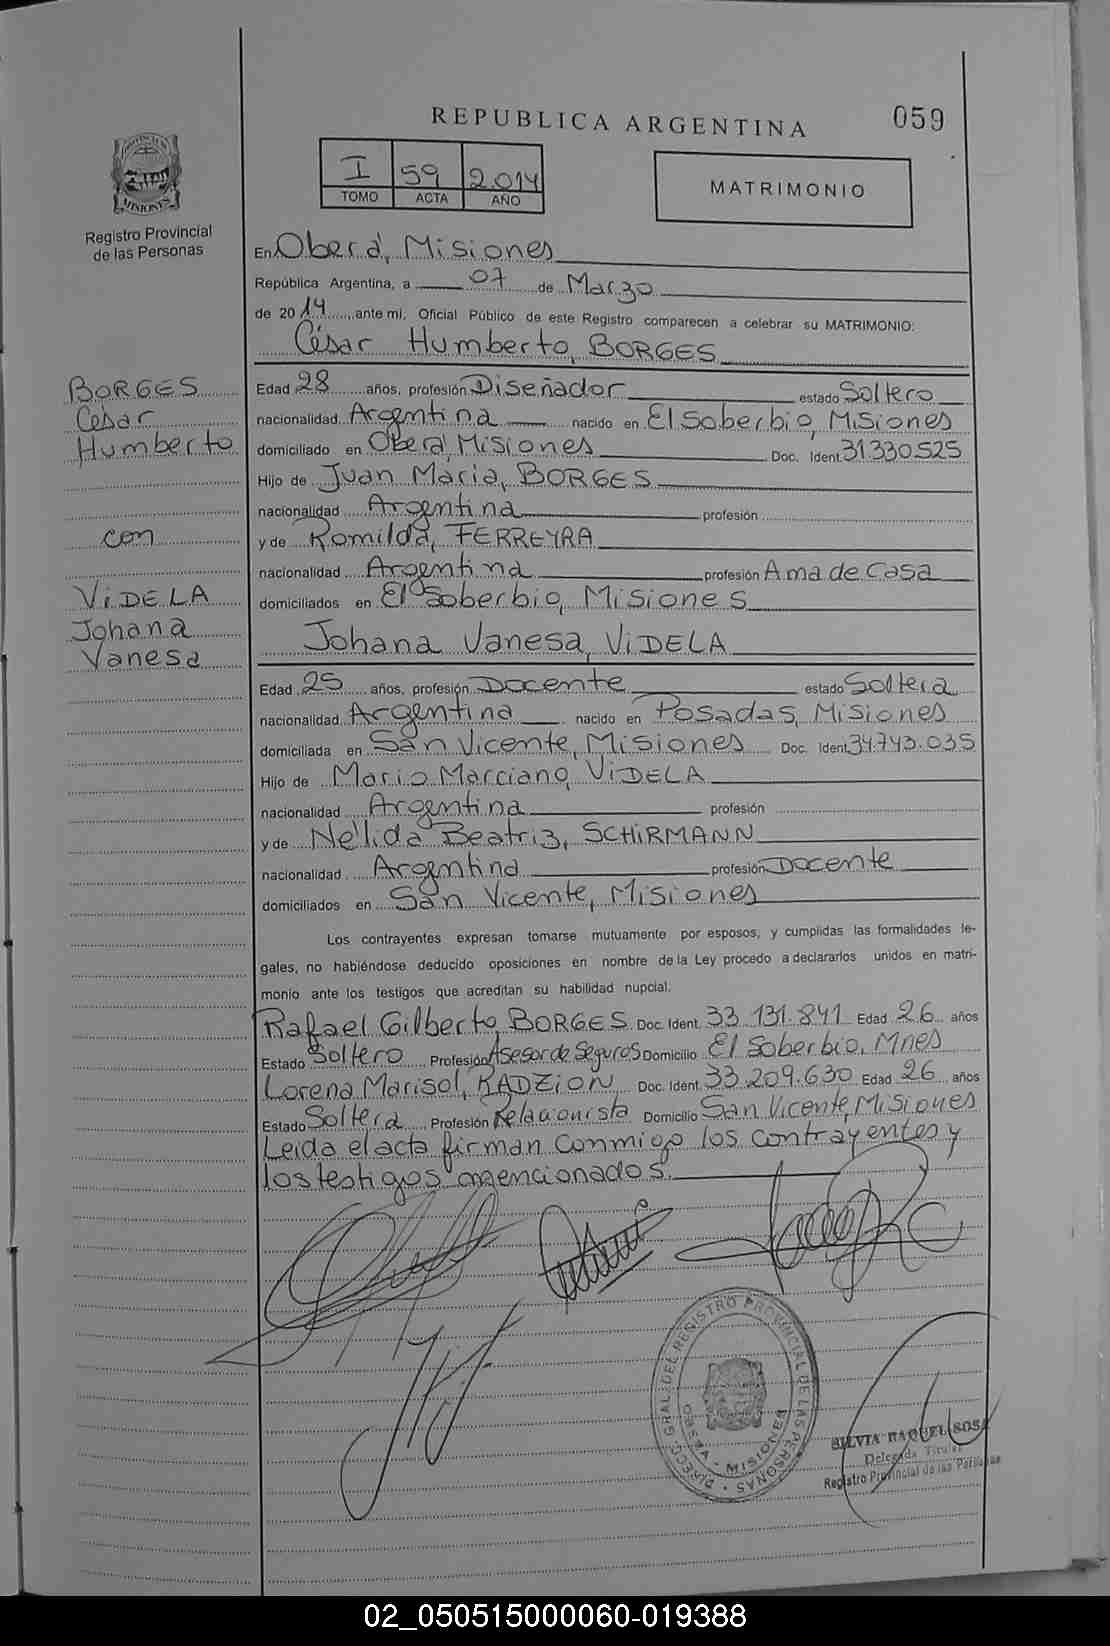 REPUBLICA ARGENTINA
059
PROVINCIA DE
MISIONES
Registro Provincial
de las Personas
I 59 2.014
TOMO ACTA AÑO
MATRIMONIO
En Oberá, Misiones
República Argentina, a 07 de Marzo
de 2014, ante mi, Oficial Público de este Registro comparecen a celebrar su MATRIMONIO:
César Humberto, BORGES
BORGES
César
Humberto
con
ViDELA
Johana
Vanesa
Edad 28 años, profesión Diseñador estado Soltero
nacionalidad Argentina nacido en El Soberbio, Misiones
domiciliado en Oberá, Misiones Doc. Ident. 31330.525
Hijo de Juan Maria, BORGES
nacionalidad Argentina profesión
y de Romilda, FERREYRA
nacionalidad Argentina profesión Ama de Casa
domiciliados en El Soberbio, Misiones
Johana Vanesa, ViDELA
Edad 25 años, profesión Docente estado Soltera
nacionalidad Argentina nacido en Posadas, Misiones
domiciliada en San Vicente, Misiones Doc. Ident. 34.743.035
Hijo de Mario Marciano, ViDELA
nacionalidad Argentina profesión
y de Nélida Beatriz, SCHiRMANN
nacionalidad Argentina profesión Docente
domiciliados en San Vicente, Misiones
Los contrayentes expresan tomarse mutuamente por esposos, y cumplidas las formalidades le-
gales, no habiéndose deducido oposiciones en nombre de la Ley procedo a declararlos unidos en matri-
monio ante los testigos que acreditan su habilidad nupcial.
Rafael Gilberto, BORGES Doc. Ident. 33.131.841 Edad 26 años
Estado Soltero Profesión Asesor de Seguros Domicilio El Soberbio, Mnes
Lorena Marisol, KADZiON Doc. Ident. 33.209.630 Edad 26 años
Estado Soltera Profesión Relacionista Domicilio San Vicente, Misiones
Leida el acta firman conmigo los contrayentes y
los testigos mencionados.
DIRECC. GRAL. DEL REGISTRO PROVINCIAL DE LAS PERSONAS
OBERA - MISIONES
SILVIA RAQUEL SOSA
Delegada Titular
Registro Provincial de las Personas
02_050515000060-019388